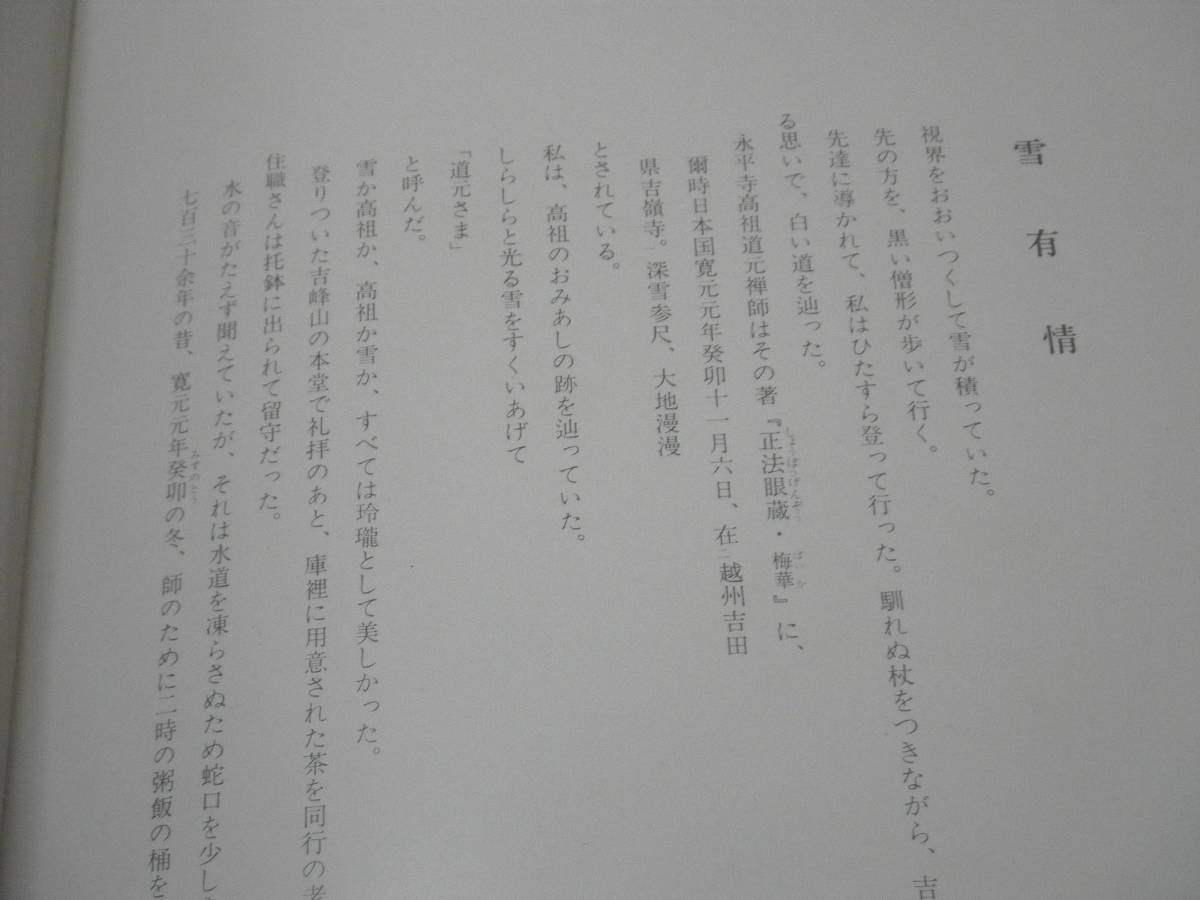 雪有情
視界をおおいつくして雪が積っていた。
先の方を、黒い僧形が歩いて行く。
先達に導かれて、私はひたすら登って行った。馴れぬ杖をつきながら、吉
る思いで、白い道を辿った。
永平寺高祖道元禅師はその著『正法眼蔵・梅華』に、
しょうぼうげんぞう
ばいか
爾時日本国寛元元年癸卯十一月六日、在二越州吉田
県吉嶺寺。一深雪参尺、大地漫漫
とされている。
私は、高祖のおみあしの跡を辿っていた。
しらしらと光る雪をすくいあげて
「道元さま」
と呼んだ。
雪か高祖か、高祖か雪か、すべては玲瓏として美しかった。
登りついた吉峰山の本堂で礼拝のあと、庫裡に用意された茶を同行の
住職さんは托鉢に出られて留守だった。
水の音がたえず聞えていたが、それは水道を凍らさぬため蛇口を少し
七百三十余年の昔、寛元元年癸卯の冬、師のために二時の粥飯の桶を
みずのとう